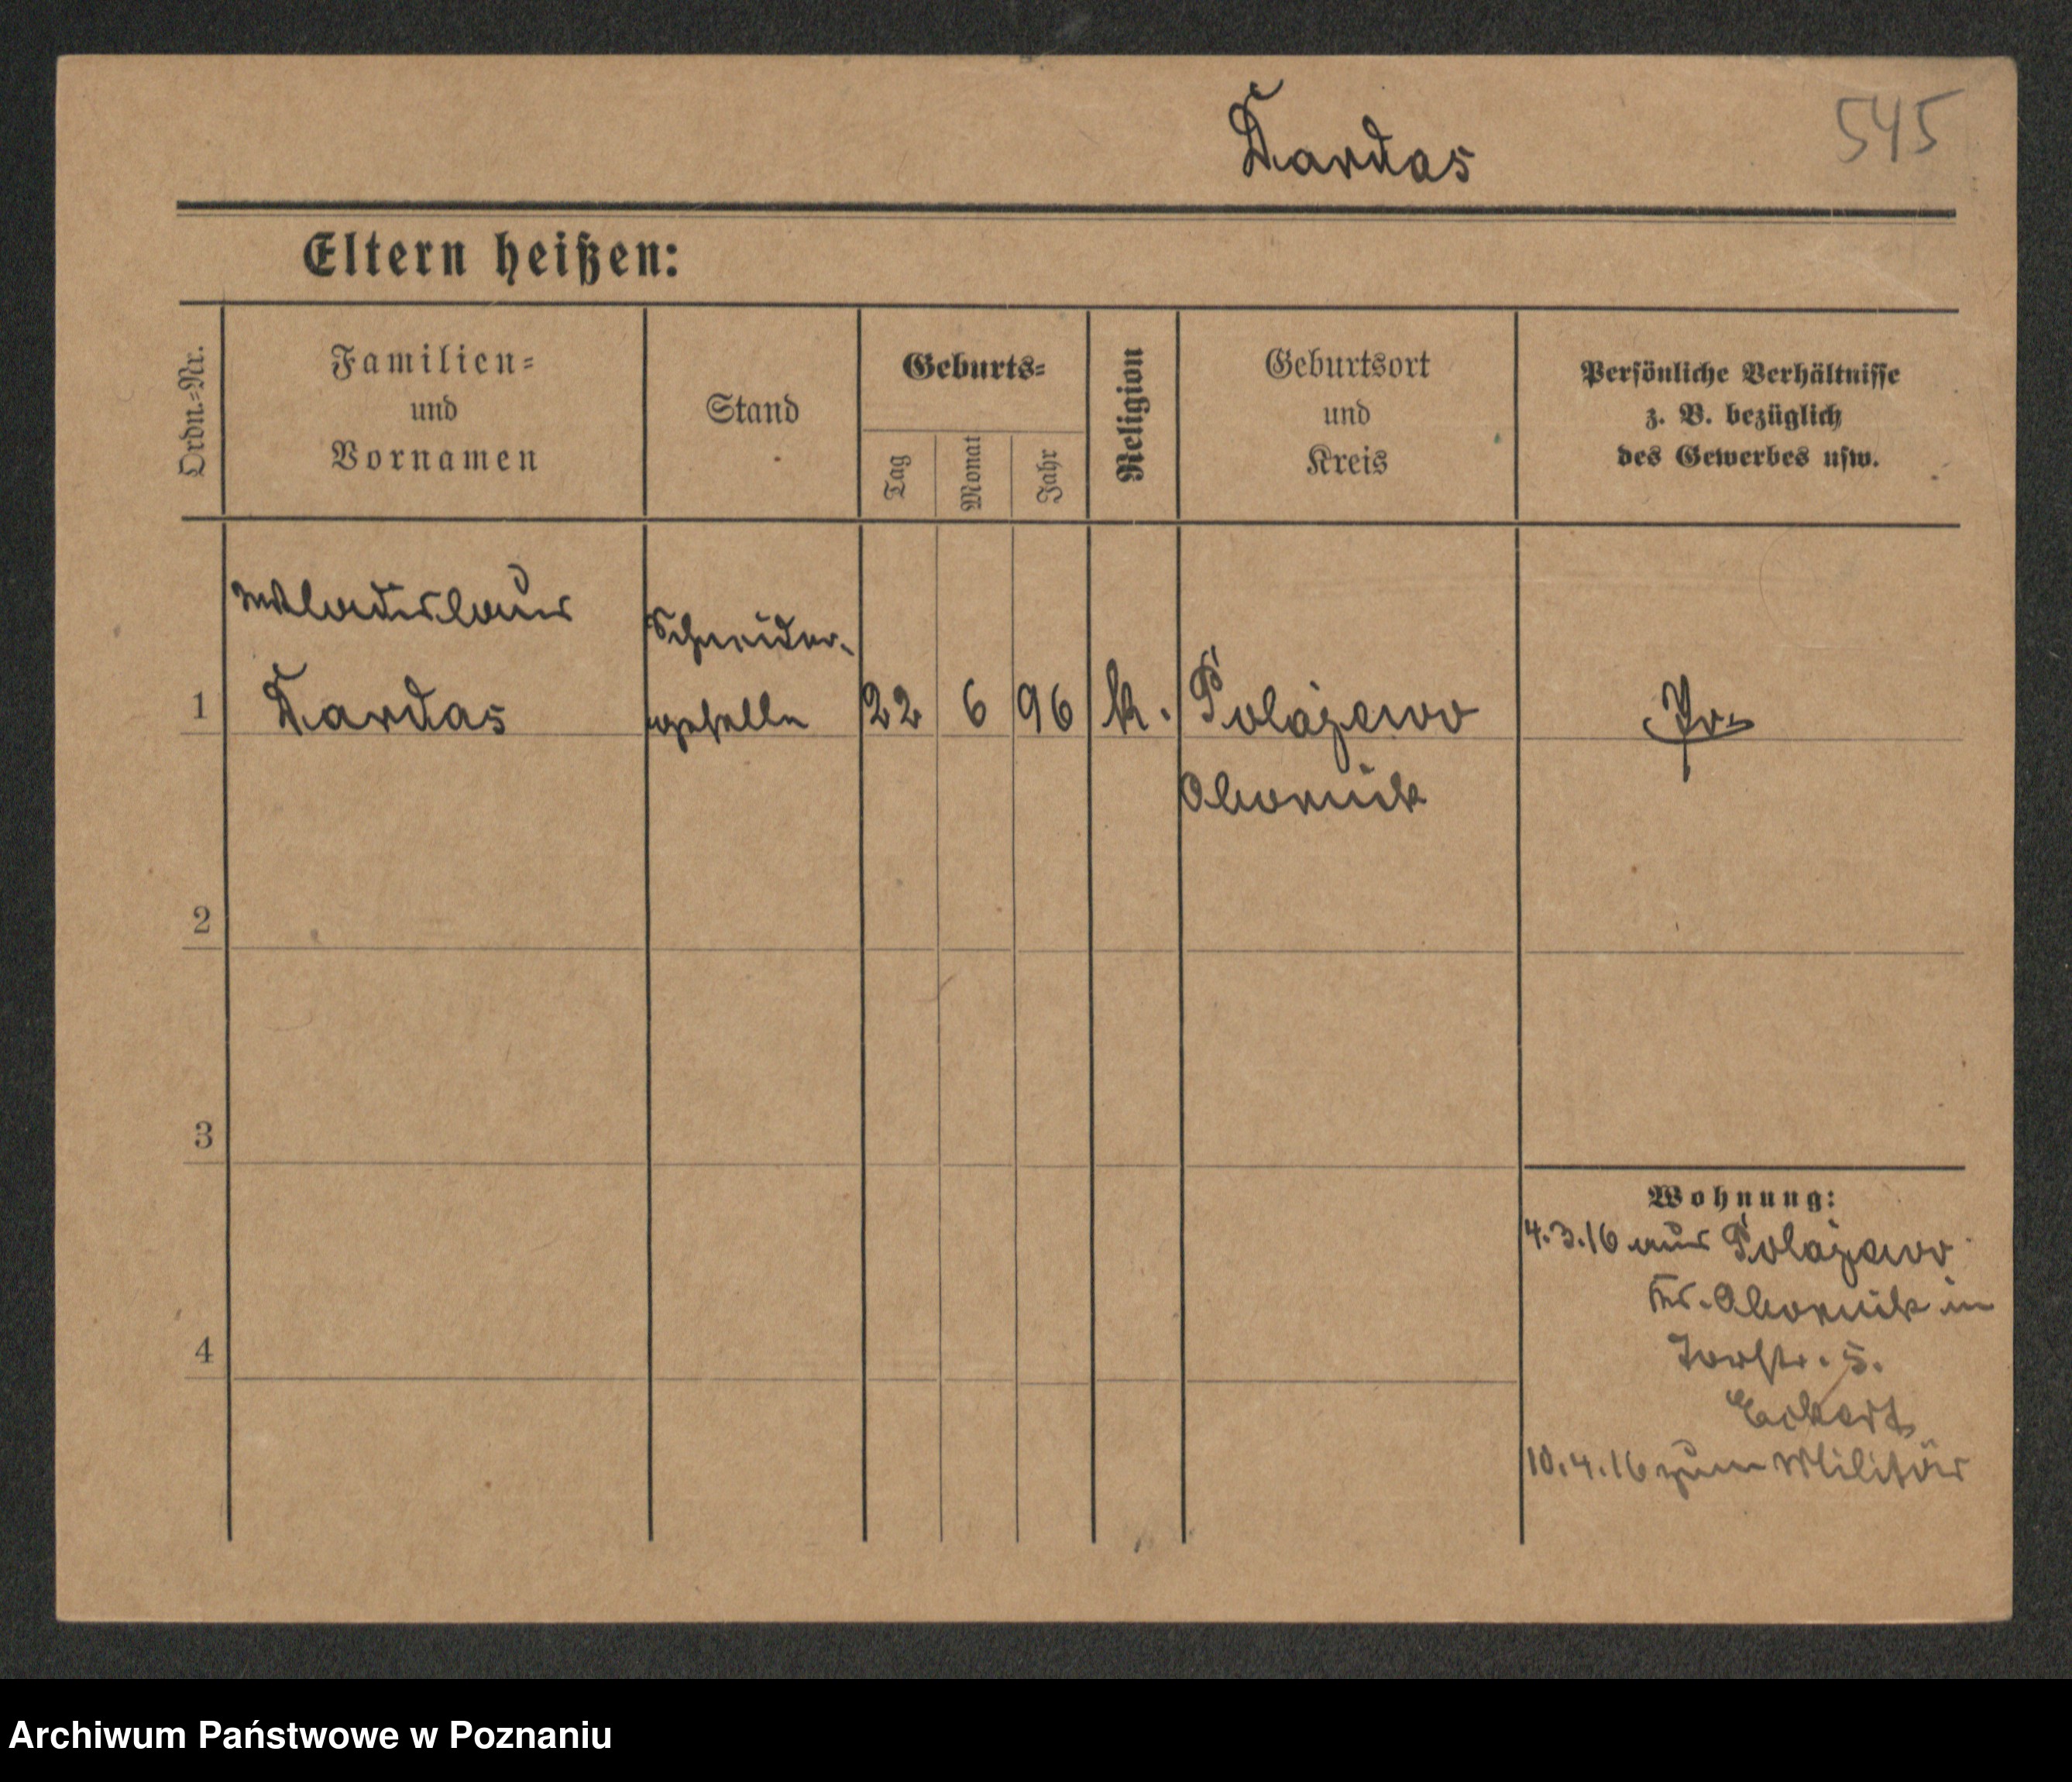 Dardas
545
Eltern heißen:
Ordn.-Nr.
Familien-
und
Vornamen
Stand
Geburts-
Tag
Monat
Jahr
Religion
Geburtsort
und
Kreis
Persönliche Verhältnisse
z. B. bezüglich
des Gewerbes usw.
Wladislaus
Schneider-
1
Dardas
geselle
22
6
96
k.
Polajewo
Pr.
Obornick
2
3
Wohnung:
4.3.16 aus Polajewo
Kr. Obornick in
4
Torstr. 5.
Eckert
10.4.16 zum Militär
Archiwum Państwowe w Poznaniu